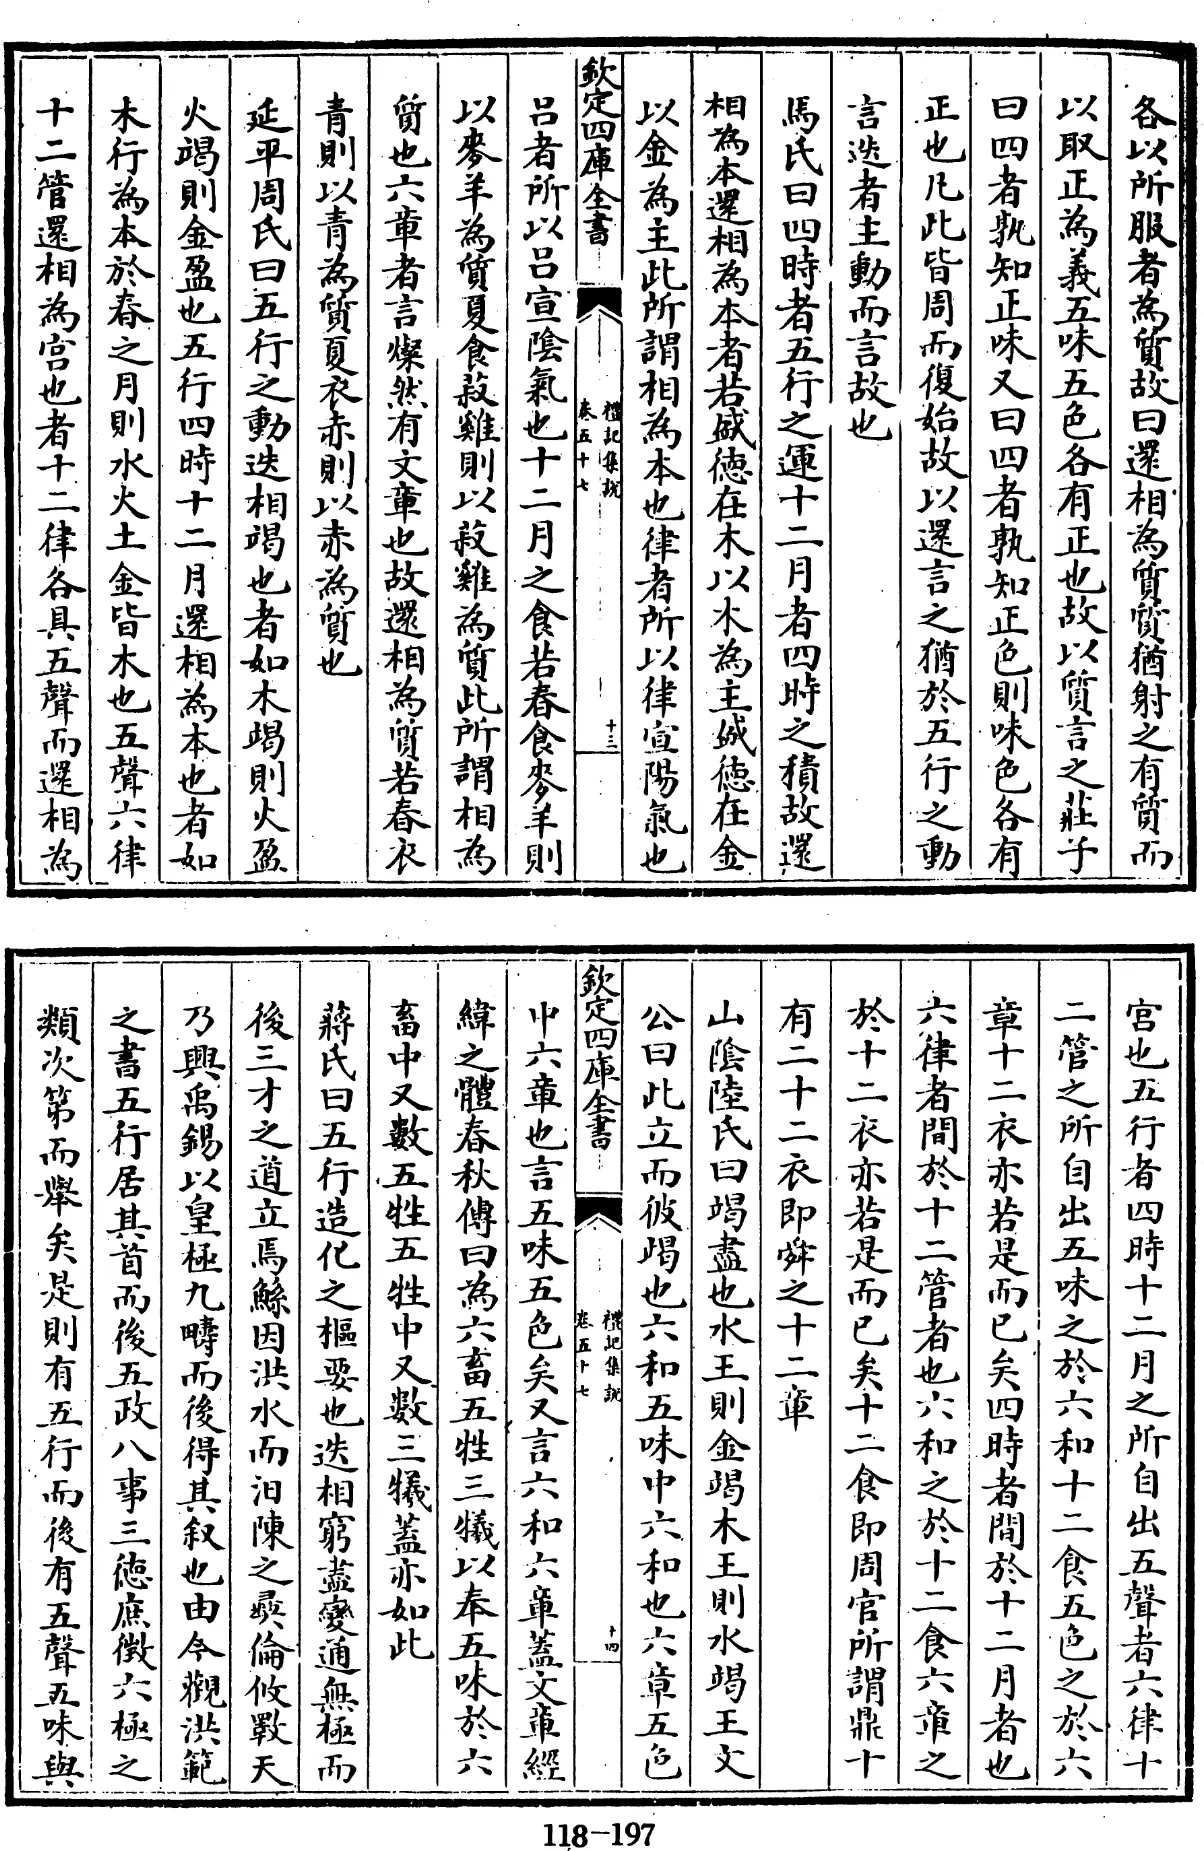 各以所服者為質故曰還相為質質猶射之有質而
以取正為義五味五色各有正也故以質言之莊子
曰四者孰知正味又曰四者孰知正色則味色各有
正也凡此皆周而復始故以還言之猶於五行之動
言迭者主動而言故也
馬氏曰四時者五行之運十二月者四時之積故還
相為本還相為本者若盛德在木以木為主盛德在金
以金為主此所謂相為本也律者所以律宣陽氣也
欽定四庫全書
禮記集說
卷五十七
十三
呂者所以呂宣陰氣也十二月之食若春食麥羊則
以麥羊為質夏食菽雞則以菽雞為質此所謂相為
質也六章者言燦然有文章也故還相為質若春衣
青則以青為質夏衣赤則以赤為質也
延平周氏曰五行之動迭相竭也者如木竭則火盈
火竭則金盈也五行四時十二月還相為本也者如
木行為本於春之月則水火土金皆木也五聲六律
十二管還相為宮也者十二律各具五聲而還相為
宮也五行者四時十二月之所自出五聲者六律十
二管之所自出五味之於六和十二食五色之於六
章十二衣亦若是而已矣四時者間於十二月者也
六律者間於十二管者也六和之於十二食六章之
於十二衣亦若是而已矣十二食即周官所謂鼎十
有二十二衣即舜之十二章
山陰陸氏曰竭盡也水王則金竭木王則水竭王文
公曰此立而彼竭也六和五味中六和也六章五色
欽定四庫全書
禮記集說
卷五十七
十四
中六章也言五味五色矣又言六和六章蓋文章經
緯之體春秋傳曰為六畜五牲三犧以奉五味於六
畜中又數五牲五牲中又數三犧蓋亦如此
蔣氏曰五行造化之樞要也迭相窮盡變通無極而
後三才之道立焉鯀因洪水而汨陳之彞倫攸斁天
乃興禹錫以皇極九疇而後得其叙也由今觀洪範
之書五行居其首而後五政八事三德庶徴六極之
類次第而舉矣是則有五行而後有五聲五味與
118-197